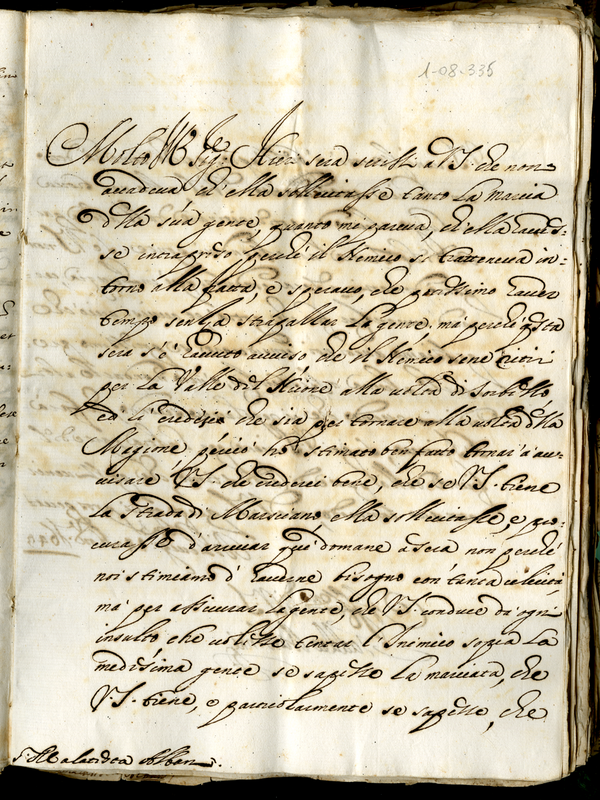 1-08-335
Molto Ill. Sig.re Hier sera scrissi a V.S. che non
accadeva ch'ella sollecitasse tanto la marcia
della sua gente, quanto mi pareva, ch'ella haves-
se intrapreso, perche il Nemico si tratteneva in-
torno alla fratta, e speravo, che potessimo haver
tempo senza strapallar la gente. mà perche q.sta
sera s'è havuto avviso che il Nemico se ne ritiri
per la Valle del Niccone alla volta di Sorbello
et si crede che sia per tornare alla volta della
Magione, perciò hò stimato ben fatto tornar' a au-
visare V.S. che crederei bene, che se V.S. tiene
la strada di Marsciano ella sollecitasse, e pro-
curasse d'arrivar quà domane a sera non perche
noi stimiamo d'haverne bisogno con tanta celerità,
mà per assicurar la gente, che V.S. conduce da ogni
insulto, che volesse tentar l'Inimico sopra la
medesima gente se sapesse la marciata, che
V.S. tiene, e particolarmente se sapesse, che
S. Malatesta Albani